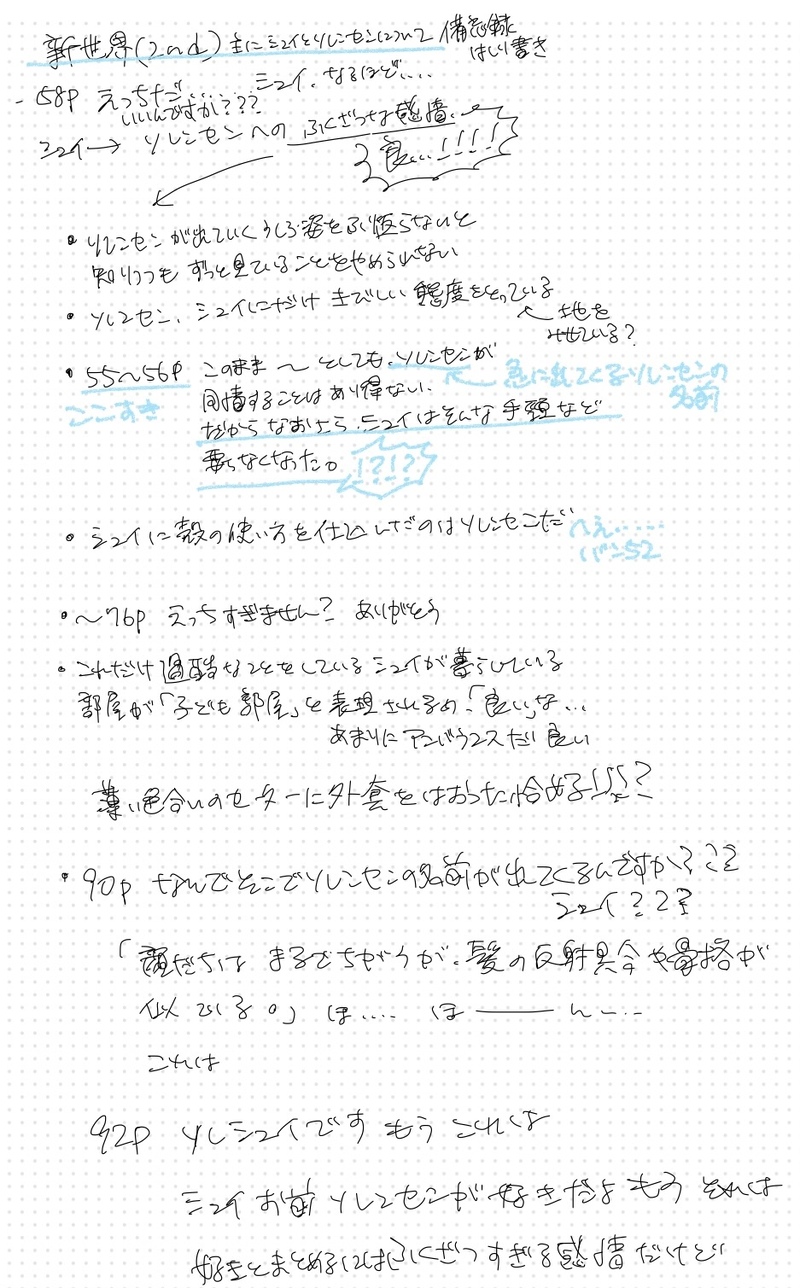 新世界(2nd) 主にシュイとソレンセンについて 備忘録
はしり書き
- 58p えっちだ……… シュイ、なるほど…
いいんですか???
シュイ→ ソレンセンへの ふくざつな感情、
良…!!!!
• ソレンセンが出ていくうしろ姿をふり返らないと
知りつつも ずっと見ていることをやめられない
• ソレンセン、シュイにだけ きびしい 態度をとっている
← 地を
みせている?
• 55〜56p このまま 〜 としても、ソレンセンが
同情することはあり得ない、
だから なおさら、シュイはそんな 手強など
要らなくなった。 !?!?
← 急に出てくるソレンセンの
名前
ここすき
• シュイに殻の使い方を仕込んだのはソレンセンだ へえ……
パン52
• 〜76p えっちすぎません? ありがとう
• これだけ過酷なことをしているシュイが暮らしている
部屋が「子ども部屋」と表現されるの、「良い」な…
あまりにアンバランスだ 良い
薄い色合いのセーターに外套をはおった拾め子!!!?
• 90p なんでそこでソレンセンの名前が出てくるんですか???
シュイ???
「顔だちは まるでちがうが、髪の反射具合や骨格が
似ている。」 ほ…. ほ――ん…
これは
92p ソレシュイです もう これは
シュイ お前 ソレンセンが 好きだよ もう それは
好きとまとめるにはふくざつすぎる感情だけど